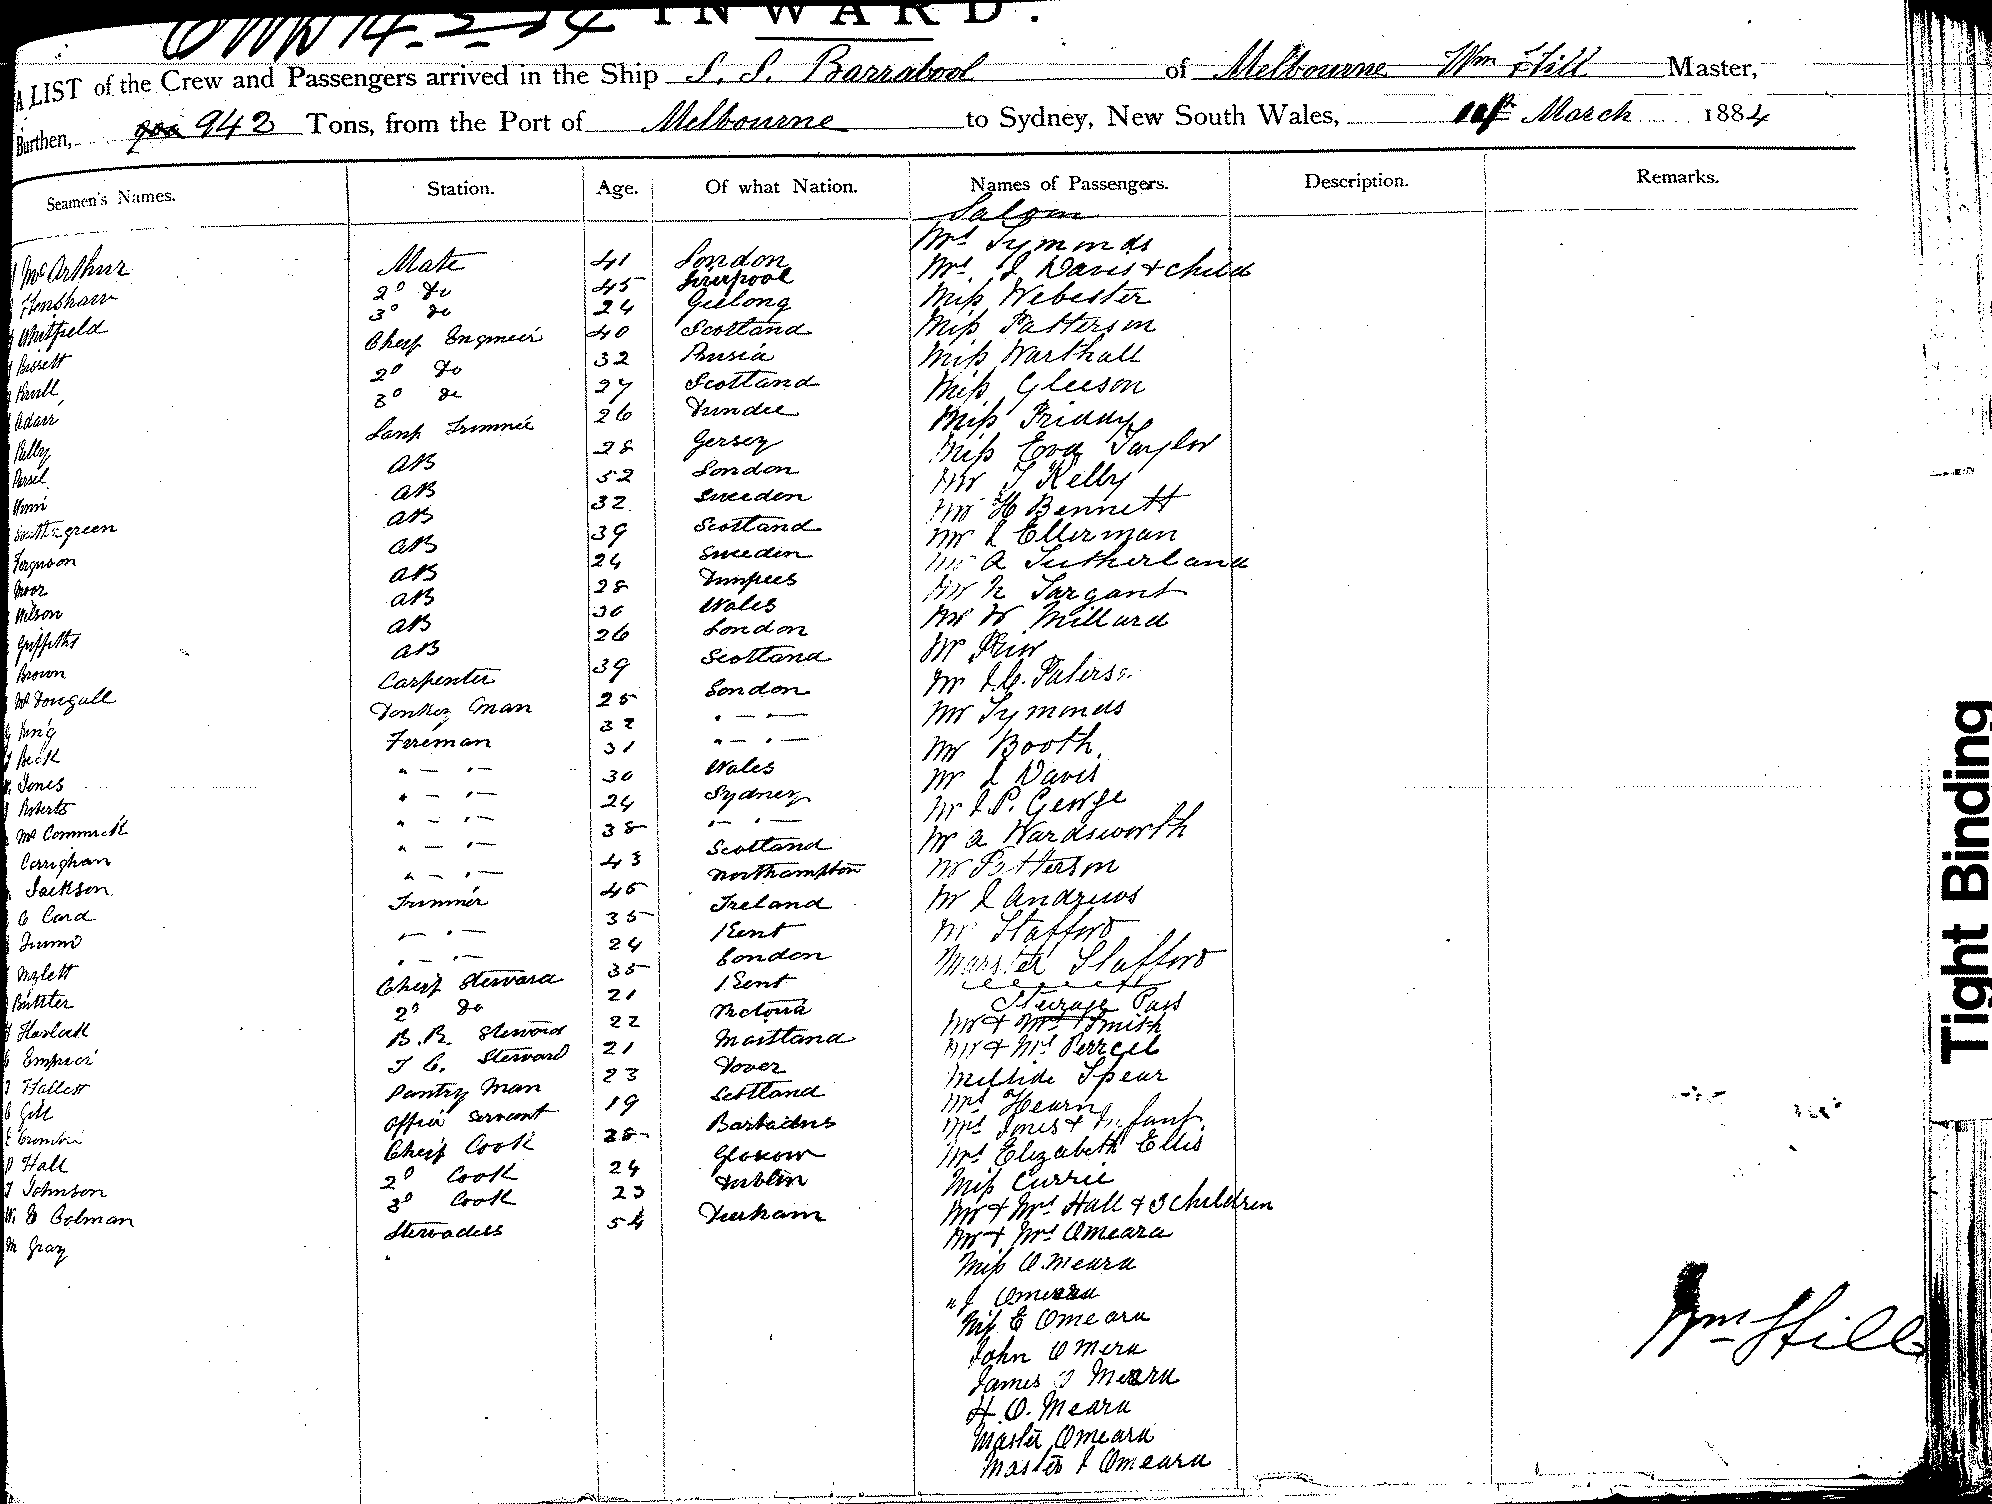 INWARD.
A LIST of the Crew and Passengers arrived in the Ship S. S. Barrabool of Melbourne Wm Hill Master,
Burthen, 942 Tons, from the Port of Melbourne to Sydney, New South Wales, March 1884
Seamen's Names. Station. Age. Of what Nation. Names of Passengers. Description. Remarks.
Saloon
Mrs Symonds
McArthur Mate 41 London Mrs J Davis & child
Henshaw 2o do 45 Liverpool Miss Webester
Whitfield 3o do 24 Geelong Miss Patterson
Bissett Chief Engineer 40 Scotland Miss Warthall
2o do 32 Rusia Miss Gleeson
Adair 3o do 27 Scotland Miss Friday
Kelly Lamp Trimmer 26 Dundee Miss Eva Taylor
AB 28 Jersey Mr T Kelly
AB 52 London Mr H Bennett
AB 32 Sweden Mr J Ellerman
Ferguson AB 39 Scotland Mr A Sutherland
Moor AB 24 Sweden Mr N Sargant
Wilson AB 28 Mr W Millard
Griffiths AB 30 Wales Mr
Brown AB 26 London Mr J.C.
McDougall Carpenter 39 Scotland Mr Symonds
King Donkey Man 25 London Mr Booth.
Beck Fireman 32 " — " — Mr J Davis
Jones " — " — 31 " — " — Mr J P. George
Roberts " — " — 30 Wales Mr A Wardsworth
McCormick " — " — 24 Sydney Mr Patterson
Corrighan " — " — 38 " — " — Mr J Andrews
Jackson " — " — 43 Scotland Mr Stafford
C Card Trimmer 45 Northampton Marster Stafford
" — " — 35 Ireland Steerage Pass
" — " — 24 Kent Mr & Mrs Smith
Chief Steward 35 London Mr & Mrs
2o do 21 Kent Spear
B. R. Steward 22 Victoria Mrs Hearn
T C. Steward 21 Maitland Mrs Jones & Infant.
Hallett Pantry Man 23 Dover Mrs Elizabeth Ellis
Gill Officer Servant 19 Scotland Miss Currie
Chief Cook 28 Mr & Mrs Hall & 3 children
Hall 2o Cook 24 Glasow Mr & Mrs Omeara
J Johnson 3o Cook 23 Dublin Miss O.Meara
W. E Colman Stewadess 54 Durham " J Omeara
M Gray " Miss E Omeara
John O Mera
James O Meara
H. O. Meara
Master Omeara
Master J Omeara
Wm Hill
Tight Binding